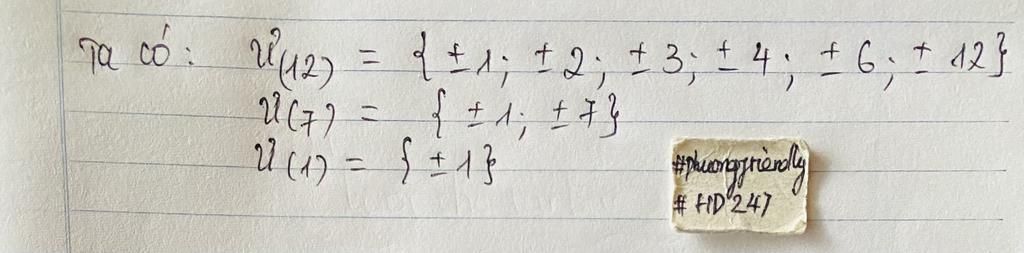 Ta có: Ư(12) = { ± 1; ± 2; ± 3; ± 4; ± 6; ± 12}
Ư(7) = { ± 1; ± 7}
Ư(1) = { ± 1}
#phuongfriendly
# HD247